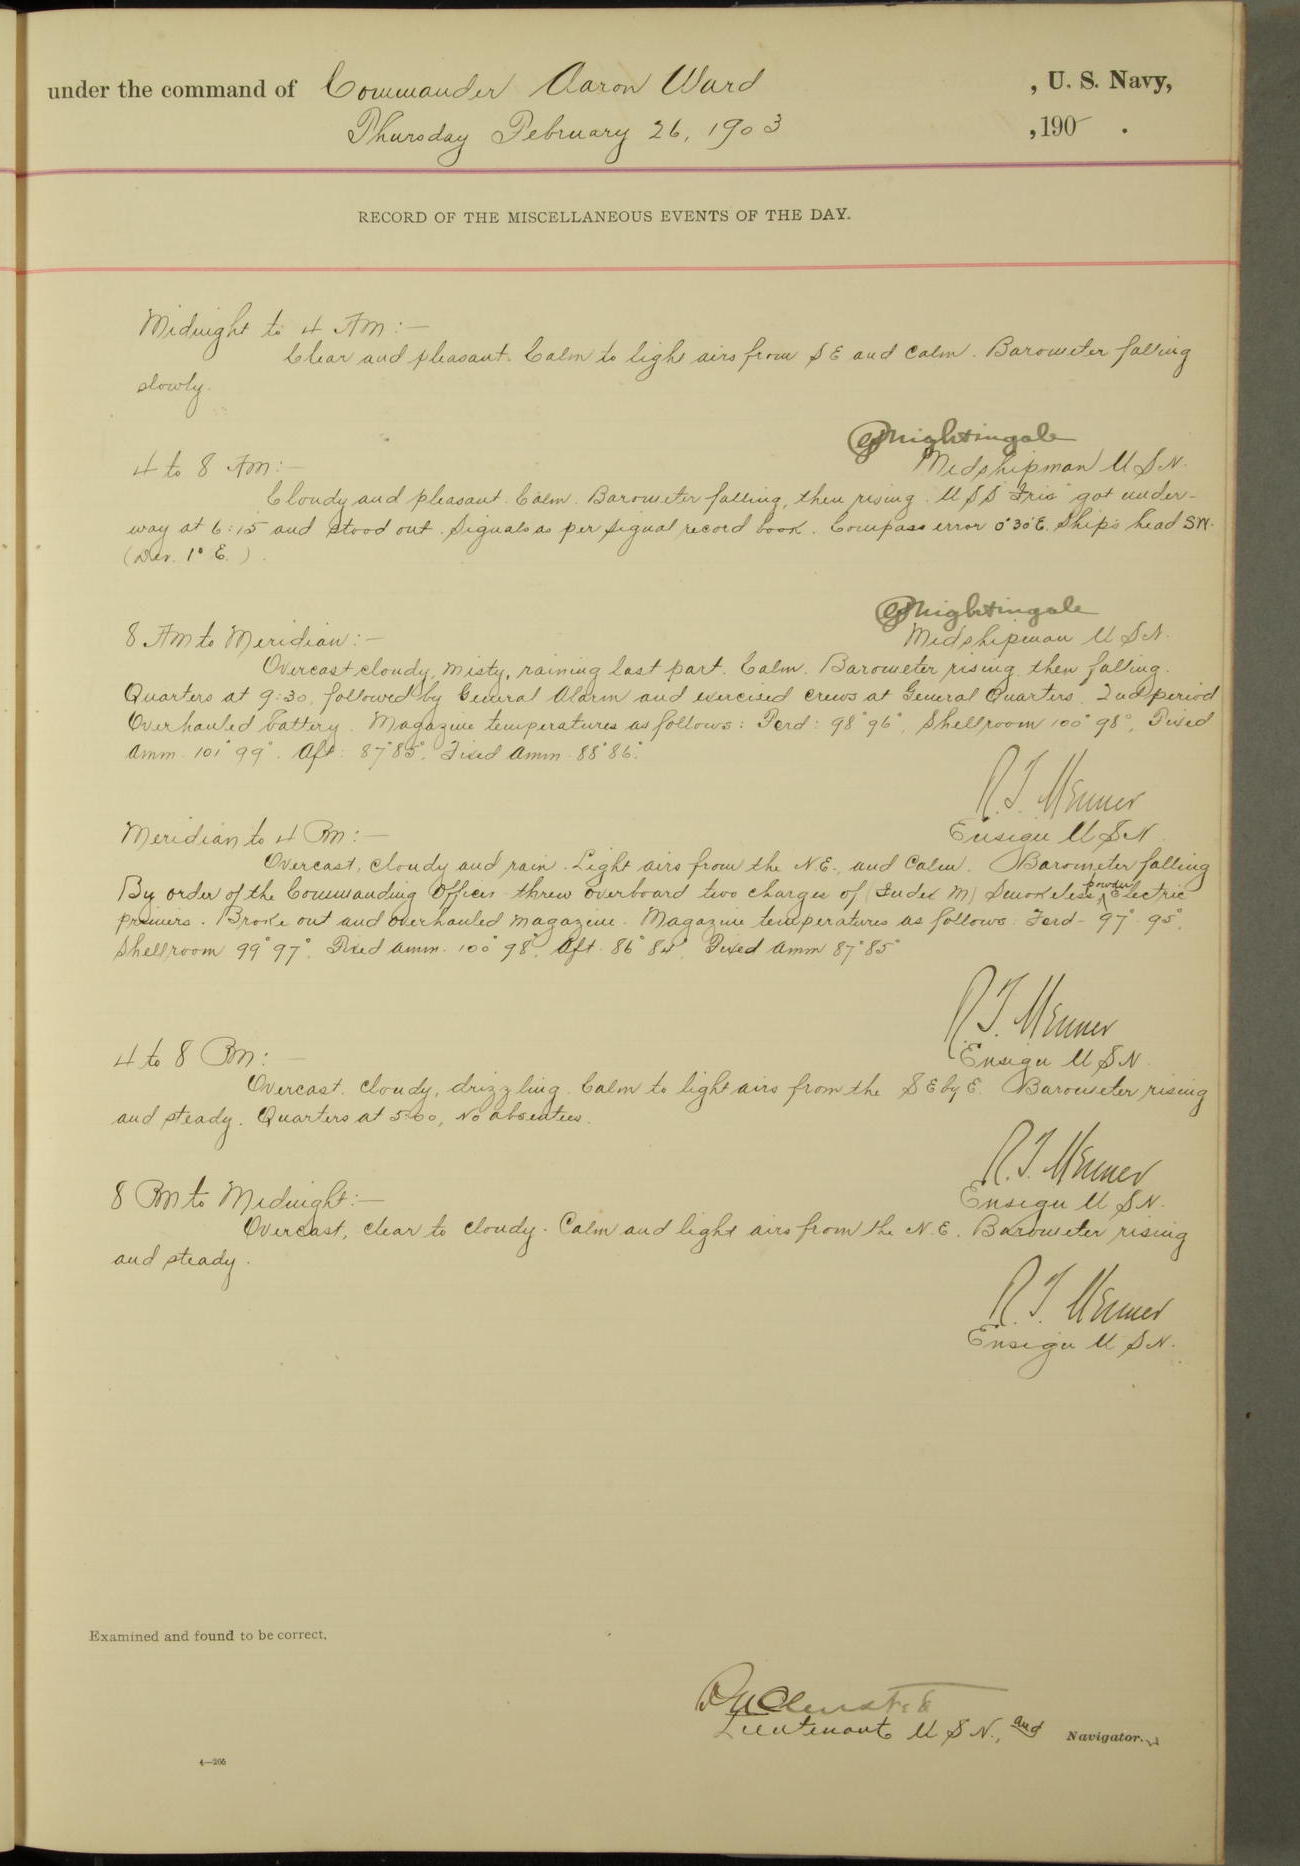 under the command of Commander Aaron Ward , U. S. Navy,
Thursday February 26, 1903 , 190 .
RECORD OF THE MISCELLANEOUS EVENTS OF THE DAY.
Midnight to 4 AM:—
Clear and pleasant. Calm to light airs from SE and calm. Barometer falling
slowly.
Nightingale
Midshipman U S N.
4 to 8 AM:—
Cloudy and pleasant. Calm. Barometer falling, then rising. U S S "Iris" got under-
way at 6:15 and stood out. Signals as per signal record book. Compass error 0°30'E. Ship's head SW.
(Dev. 1° E.).
Nightingale
Midshipman U S N.
8 AM to Meridian:—
Overcast cloudy, misty, raining last part. Calm. Barometer rising then falling.
Quarters at 9:30, followed by General Alarm and exercised crews at General Quarters. 2nd period
Overhauled battery. Magazine temperatures as follows: Ford: 98° 96°, Shellroom 100° 98°, Fixed
Amm. 101° 99°. Aft: 87° 85°. Fixed Amm. 88° 86°.
R. T. Menner
Ensign U S N.
Meridian to 4 PM:—
Overcast, cloudy and rain. Light airs from the N.E. and calm. Barometer falling
By order of the Commanding Officer threw overboard two charges of (Index M) Smokeless powder, Electric
primers. Broke out and overhauled magazine. Magazine temperatures as follows: Ford- 97° 95°,
Shellroom 99° 97°. Fixed amm. 100° 98°. Aft. 86° 84°. Fixed Amm 87° 85°
R. T. Menner
Ensign U S N.
4 to 8 PM:—
Overcast. cloudy, drizzling. Calm to light airs from the SE by E. Barometer rising
and steady. Quarters at 5:00, No absentees.
R. T. Menner
Ensign U S N.
8 PM to Midnight:—
Overcast, clear to cloudy. Calm and light airs from the N.E. Barometer rising
and steady.
R. T. Menner
Ensign U S N.
Examined and found to be correct.
Lieutenant U S N., and Navigator.
4—265